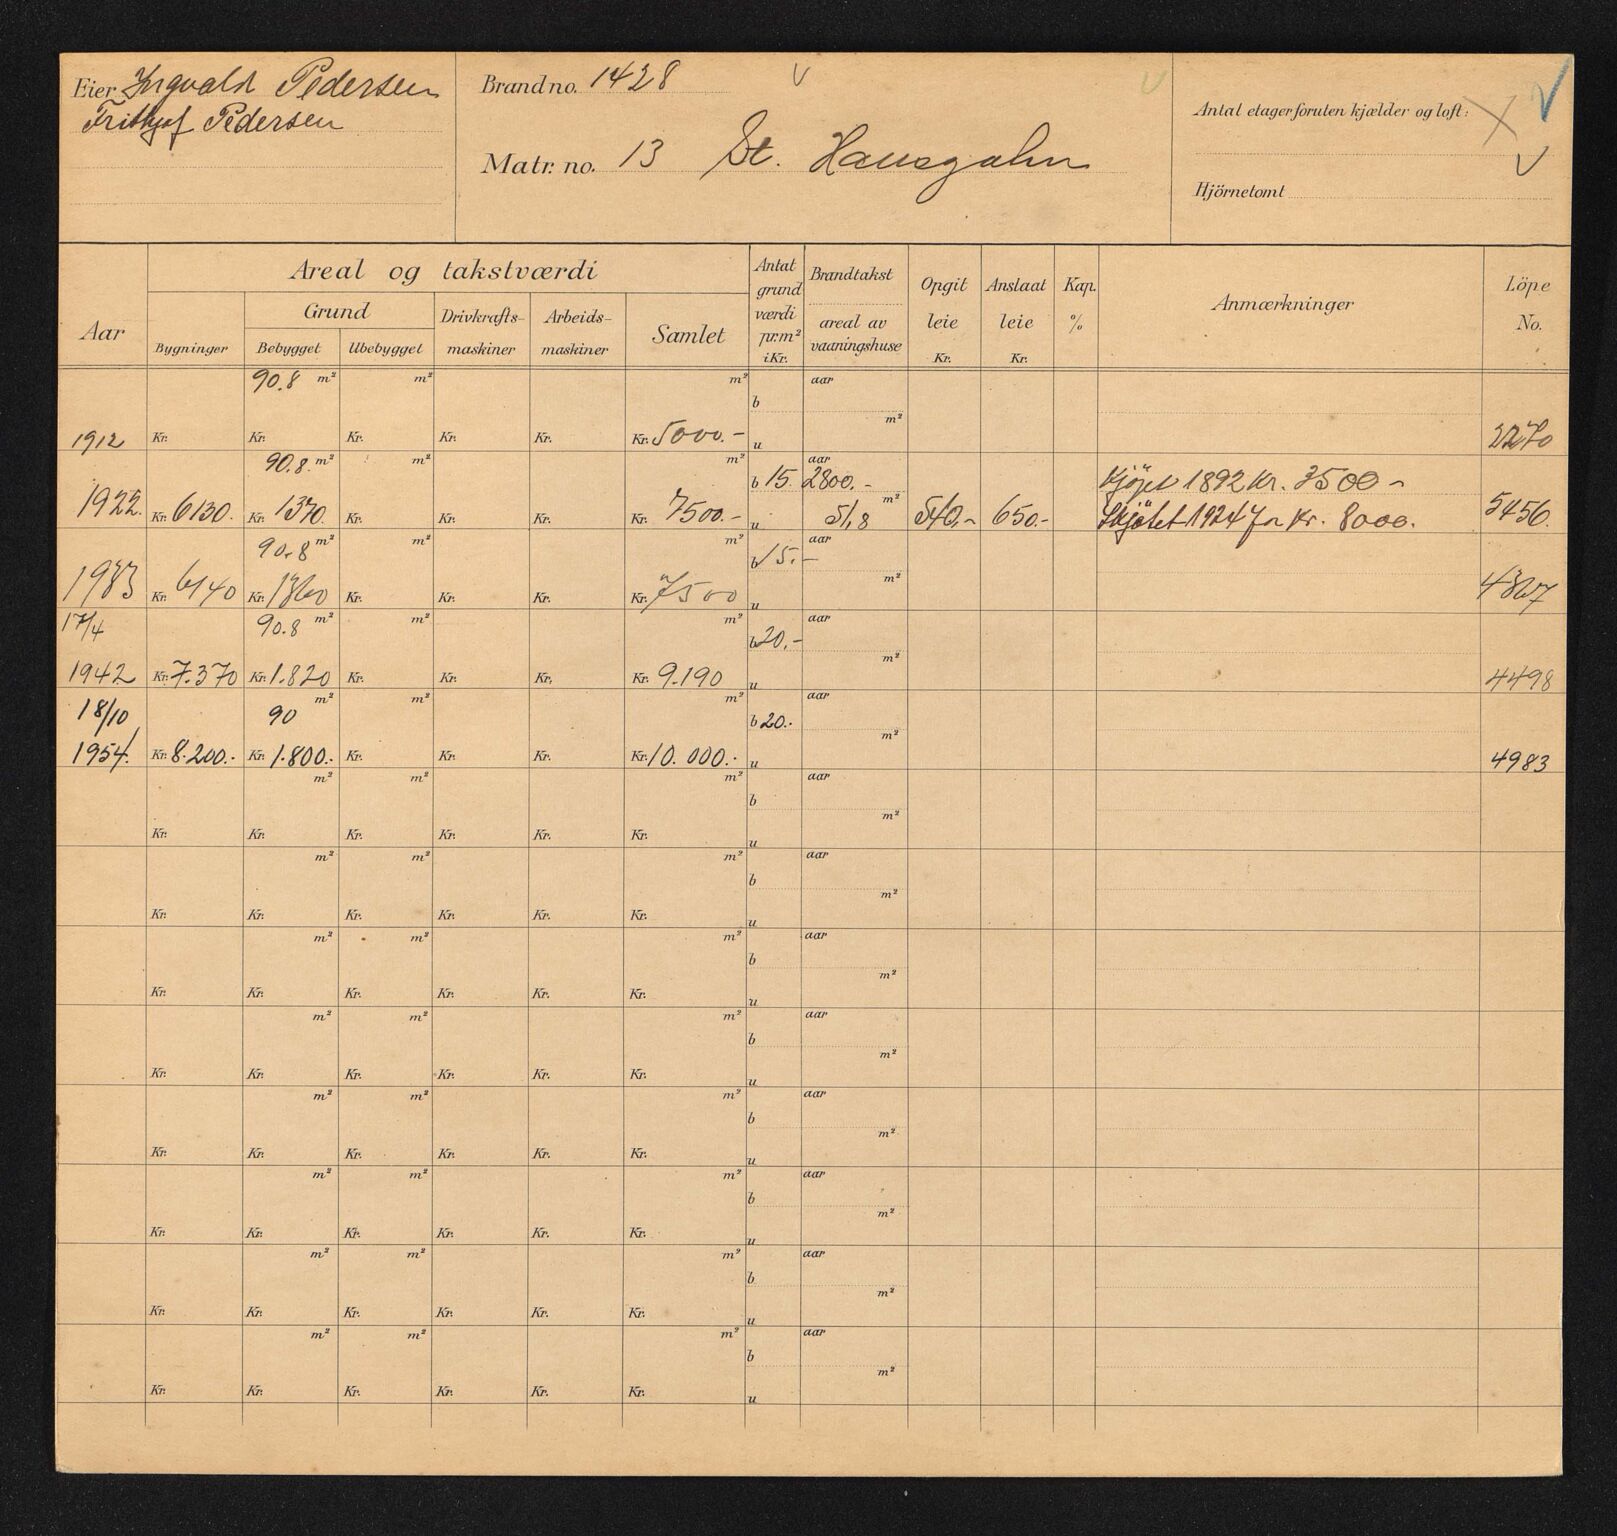 Eier Ingvald Pedersen
Frithjof Pedersen
Brand no. 1428
Matr. no. 13 St. Hansgaten
Antal etager foruten kjælder og loft:
Hjörnetomt
Aar
Areal og takstværdi
Bygninger
Grund
Bebygget
Ubebygget
Drivkrafts-
maskiner
Arbeids-
maskiner
Samlet
Antat
grund
værdi
pr.m²
i Kr.
Brandtakst
areal av
vaaningshuse
Opgit
leie
Kr.
Anslaat
leie
Kr.
Kap.
%
Anmærkninger
Löpe
No.
90.8 m² m² m² aar
b
m²
1912 Kr. Kr. Kr. Kr. Kr. Kr. 5000.- u 2270
90.8. m² m² m² aar
b 15. 2800.- Kjöpt 1892 Kr. 3500 -
m²
1922. Kr. 6130. Kr. 1370. Kr. Kr. Kr. Kr. 7500.- u 51,8 540.- 650.- Skjötet 1924 for Kr. 8000. 5456.
90.8 m² m² m² aar
b 15.-
m²
1933 Kr. 6140 Kr. 1360 Kr. Kr. Kr. Kr. 7500 u
17/4 90.8 m² m² m² aar
b 20.-
m²
1942 Kr. 7.370 Kr. 1.820 Kr. Kr. Kr. Kr. 9.190 u 4498
18/10 90 m² m² m² aar
b 20.-
m²
1954. Kr. 8.200.- Kr. 1.800.- Kr. Kr. Kr. Kr. 10.000.- u 4983
m² m² m² aar
b
m²
Kr. Kr. Kr. Kr. Kr. Kr. u
m² m² m² aar
b
m²
Kr. Kr. Kr. Kr. Kr. Kr. u
m² m² m² aar
b
m²
Kr. Kr. Kr. Kr. Kr. Kr. u
m² m² m² aar
b
m²
Kr. Kr. Kr. Kr. Kr. Kr. u
m² m² m² aar
b
m²
Kr. Kr. Kr. Kr. Kr. Kr. u
m² m² m² aar
b
m²
Kr. Kr. Kr. Kr. Kr. Kr. u
m² m² m² aar
b
m²
Kr. Kr. Kr. Kr. Kr. Kr. u
m² m² m² aar
b
m²
Kr. Kr. Kr. Kr. Kr. Kr. u